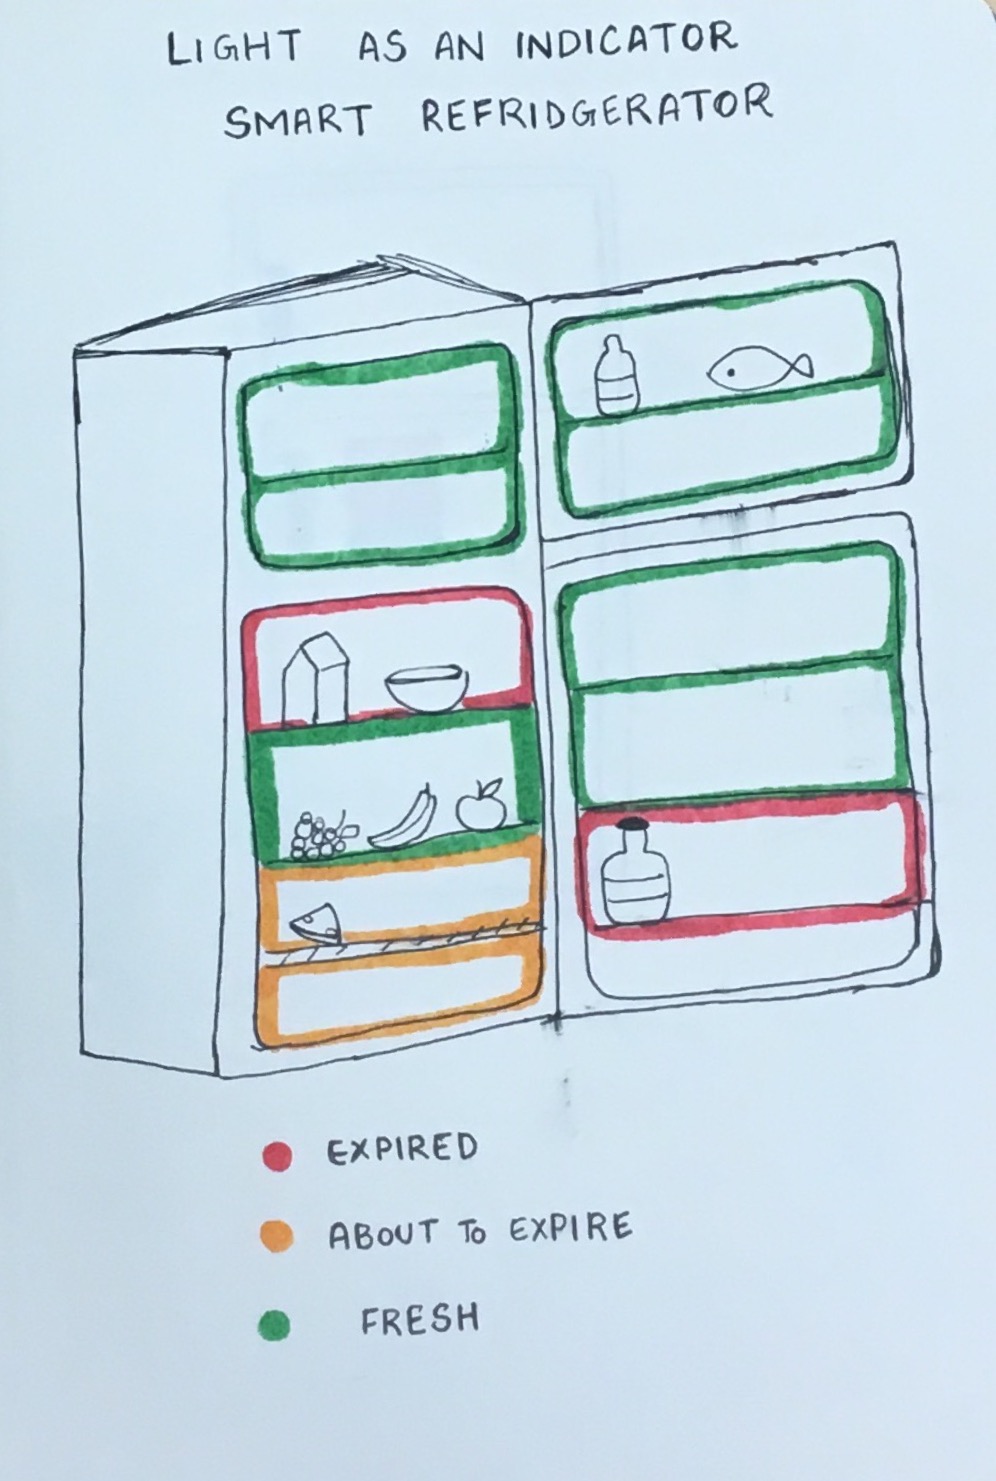 LIGHT AS AN INDICATOR
SMART REFRIDGERATOR
EXPIRED
ABOUT TO EXPIRE
FRESH